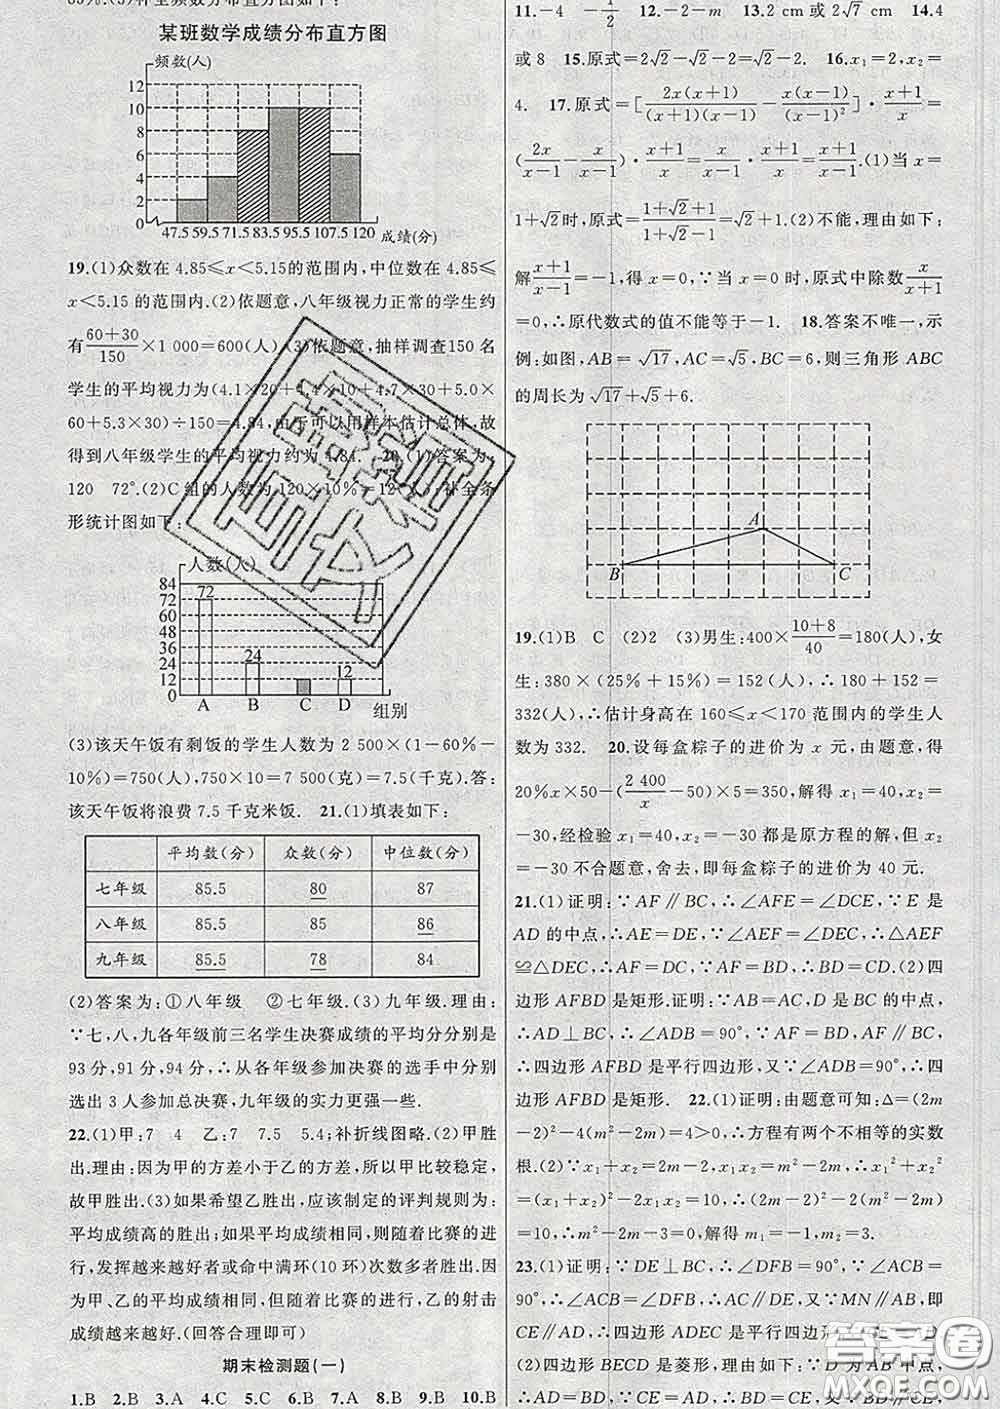 某班数学成绩分布直方图
频数(人)
12
10
8
6
4
2
0
47.5 59.5 71.5 83.5 95.5 107.5 120 成绩(分)
19.(1)众数在 4.85≤x<5.15的范围内,中位数在 4.85≤
x<5.15 的范围内.(2)依题意,八年级视力正常的学生约
有(60+30)/150×1 000=600(人).(3)依题意,抽样调查150 名
学生的平均视力为(4.1×20+4.4×10+4.7×30+5.0×
60+5.3×30)÷150=4.84,由于可以用样本估计总体,故
得到八年级学生的平均视力约为4.84. 20.(1)答案为:
120 72°.(2)C组的人数为120×10%=12(人);补全条
形统计图如下:
人数(人)
84
72
60
48
36
24
12
0
72
24
12
A B C D 组别
(3)该天午饭有剩饭的学生人数为 2 500×(1-60%-
10%)=750(人),750×10=7 500(克)=7.5(千克).答:
该天午饭将浪费 7.5 千克米饭. 21.(1)填表如下:
平均数(分) 众数(分) 中位数(分)
七年级 85.5 80 87
八年级 85.5 85 86
九年级 85.5 78 84
(2)答案为:①八年级 ②七年级.(3)九年级.理由:
∵七,八,九各年级前三名学生决赛成绩的平均分分别是
93分,91分,94分,∴从各年级参加决赛的选手中分别
选出 3 人参加总决赛,九年级的实力更强一些.
22.(1)甲:7 4 乙:7 7.5 5.4;补折线图略.(2)甲胜
出.理由:因为甲的方差小于乙的方差,所以甲比较稳定,
故甲胜出.(3)如果希望乙胜出,应该制定的评判规则为:
平均成绩高的胜出;如果平均成绩相同,则随着比赛的进
行,发挥越来越好或命中满环(10 环)次数多者胜出.因
为甲、乙的平均成绩相同,但随着比赛的进行,乙的射击
成绩越来越好.(回答合理即可)
期末检测题(一)
1.B 2.B 3.A 4.C 5.C 6.B 7.A 8.B 9.B 10.B
11.-4 -1/2 12.-2-m 13.2 cm 或 2√7 cm 14.4
或 8 15.原式=2√2-√2-2=√2-2. 16.x₁=2,x₂=
4. 17.原式=[2x(x+1)/(x+1)(x-1)-x(x-1)/(x-1)²]·(x+1)/x=
(2x/(x-1)-x/(x-1))·(x+1)/x=x/(x-1)·(x+1)/x=(x+1)/(x-1).(1)当 x=
1+√2时,原式=(1+√2+1)/(1+√2-1)=√2+1.(2)不能,理由如下:
解(x+1)/(x-1)=-1,得 x=0,∵当 x=0 时,原式中除数x/(x+1)
=0,∴原代数式的值不能等于-1. 18.答案不唯一,示
例:如图,AB=√17,AC=√5,BC=6,则三角形 ABC
的周长为√17+√5+6.
A
B
C
19.(1)B C (2)2 (3)男生:400×(10+8)/40=180(人),女
生:380×(25%+15%)=152(人),∴180+152=
332(人),∴估计身高在 160≤x<170 范围内的学生人
数为 332. 20.设每盒粽子的进价为 x 元,由题意,得
20%x×50-(2 400/x-50)×5=350,解得 x₁=40,x₂=
-30,经检验 x₁=40,x₂=-30都是原方程的解,但 x₂
=-30不合题意,舍去,即每盒粽子的进价为 40 元.
21.(1)证明:∵AF∥BC,∴∠AFE=∠DCE,∵E 是
AD 的中点,∴AE=DE,∵∠AEF=∠DEC,∴△AEF
≌△DEC,∴AF=DC,∵AF=BD,∴BD=CD.(2)四
边形 AFBD 是矩形.证明:∵AB=AC,D 是 BC 的中点,
∴AD⊥BC,∴∠ADB=90°,∵AF=BD,AF∥BC,
∴四边形 AFBD 是平行四边形,又∵∠ADB=90°,∴四
边形 AFBD 是矩形. 22.(1)证明:由题意可知:Δ=(2m
-2)²-4(m²-2m)=4>0,∴方程有两个不相等的实数
根.(2)∵x₁+x₂=2m-2,x₁x₂=m²-2m,∴x₁²+x₂²
=(x₁+x₂)²-2x₁x₂=10,∴(2m-2)²-2(m²-2m)=
10,∴m²-2m-3=0,解得 m₁=-1,m₂=3.
23.(1)证明:∵DE⊥BC,∴∠DFB=90°,∵∠ACB=90°,
∴∠ACB=∠DFB,∴AC∥DE,又∵MN∥AB,即
CE∥AD,∴四边形 ADEC 是平行四边形,∴CE=AD.
(2)四边形 BECD 是菱形,理由如下:∵D 为 AB 中点,
∴AD=BD,∵CE=AD,∴BD=CE,又∵
答案圈
MXQE.COM